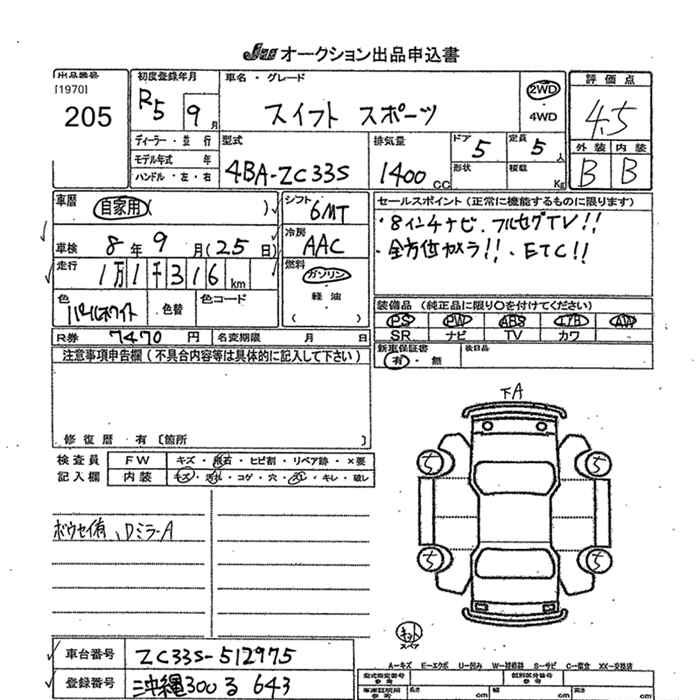 JU オークション出品申込書
出品番号
[1970]
205
初度登録年月
R5 9月
車名・グレード
スイフト スポーツ
2WD
4WD
評価点
4.5
外装 内装
B B
ディーラー・並行
モデル年式 年
ハンドル・左・右
型式
4BA-ZC33S
排気量
1400 CC
ドア 5
形状
定員 5人
積載 Kg
車歴 自家用( )
車検 8年 9月(25日)
走行 1万1千316km
色 パールホワイト 色替 色コード
シフト
6MT
冷房
AAC
燃料
ガソリン
軽油
( )
セールスポイント(正常に機能するものに限ります)
・8インチナビ・フルセグTV!!
・全方位カメラ!!・ETC!!
装備品(純正品に限り〇を付けてください)
PS PW ABS エアB AW
SR ナビ TV カワ
R券 7470円 名変期限 月 日
新車保証書
有・無
後日品
注意事項申告欄(不具合内容等は具体的に記入して下さい)
修復歴・有〔箇所 〕
検査員
記入欄
FW キズ・飛石・ヒビ割・リペア跡・×要
内装 キズ・汚れ・コゲ・穴・スレ・キレ・破レ
ボウセイ有、Dミラ-A
下A
5 5
5 5
キット
スペア
車台番号 ZC33S-512975
登録番号 沖縄300る643
A-キズ E-エクボ U-凹み W-補修跡 S-サビ C-腐食 XX-交換済
型式指定番号
参考
類別区分番号
参考
車庫証明用
参考
長さ cm
幅 cm
高さ cm